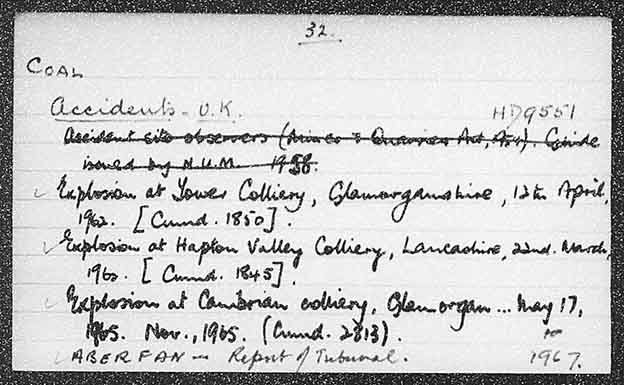 32.
COAL
Accidents - U.K. HD9551
Accident site observers (Mines & Quarries Act, 1954). Guide
issued by N.U.M. 1958.
Explosion at Tower Colliery, Glamorganshire, 12th April,
1962. [Cmnd. 1850].
Explosion at Hapton Valley Colliery, Lancashire, 22nd. March,
1962. [Cmnd. 1845].
Explosion at Cambrian colliery, Glamorgan... May 17,
1965. Nov., 1965. (Cmnd. 2813).
ABERFAN — Report of Tribunal. 1967.